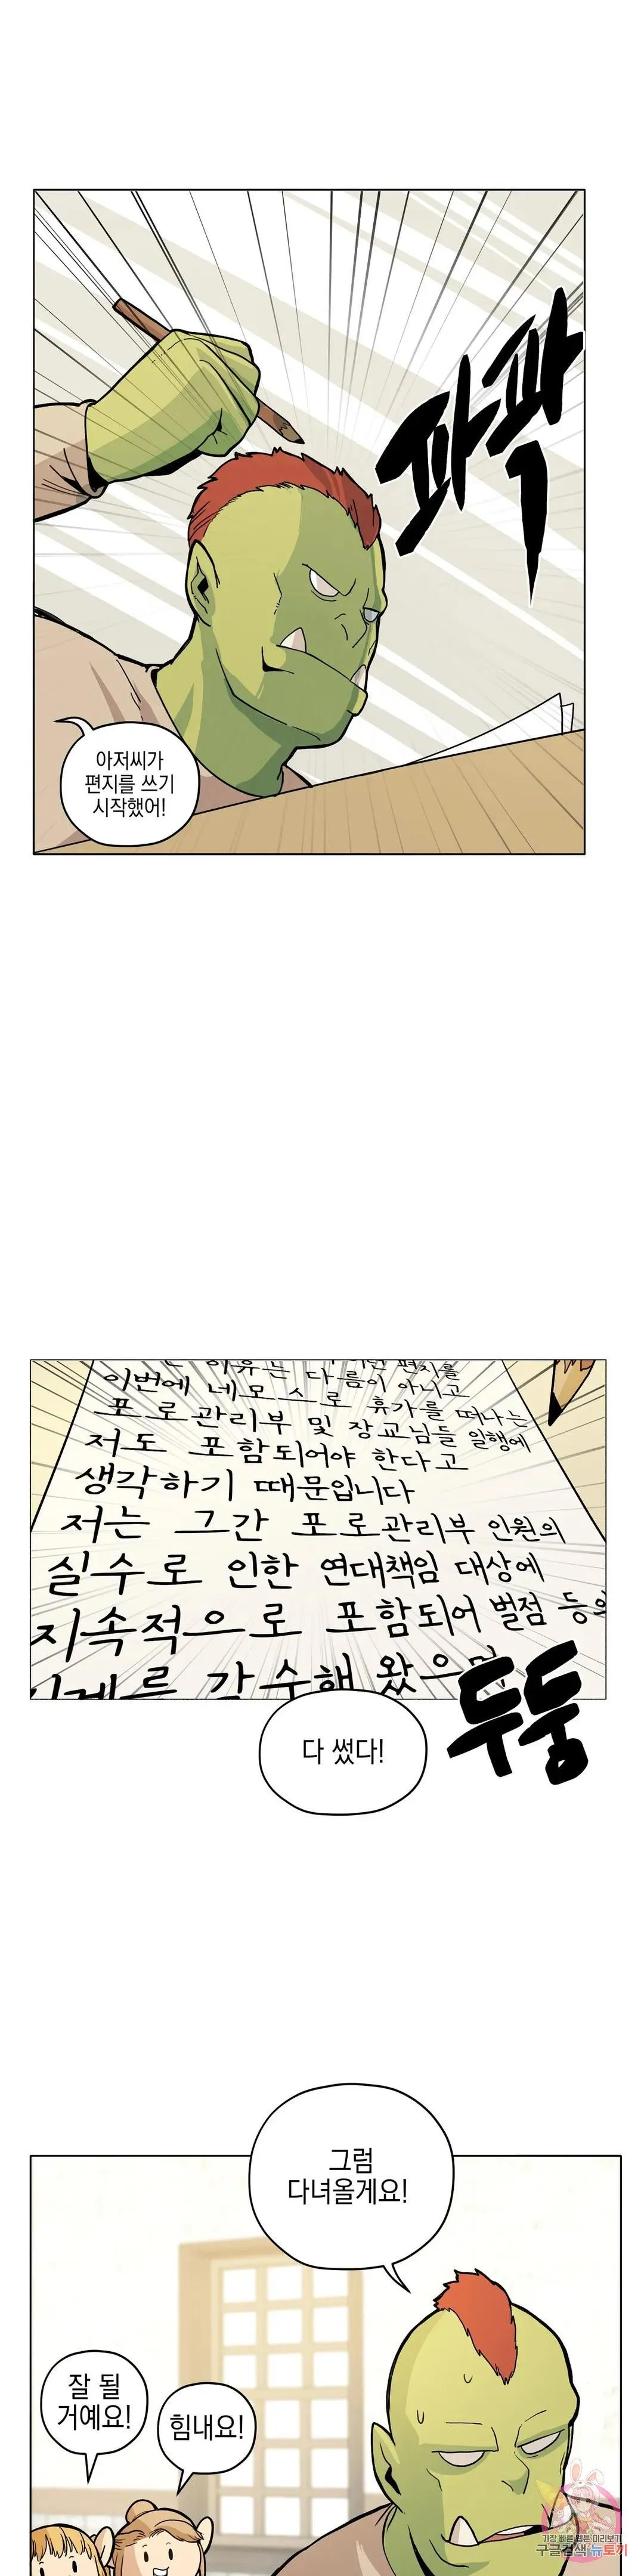 파팍
아저씨가
편지를 쓰기
시작했어!
이유는 다름이 아니고
편지를
이번에 네모 스로 휴가를 떠나는
포로관리부 및 장교님들 일행에
저도 포함되어야 한다고
생각하기 때문입니다
저는 그간 포로관리부 인원의
실수로 인한 연대책임 대상에
지속적으로 포함되어 벌점 등의
왔으며
두둥
다 썼다!
그럼
다녀올게요!
잘 될
거예요!
힘내요!
가장 빠른 웹툰 미리보기
구글검색 뉴토끼